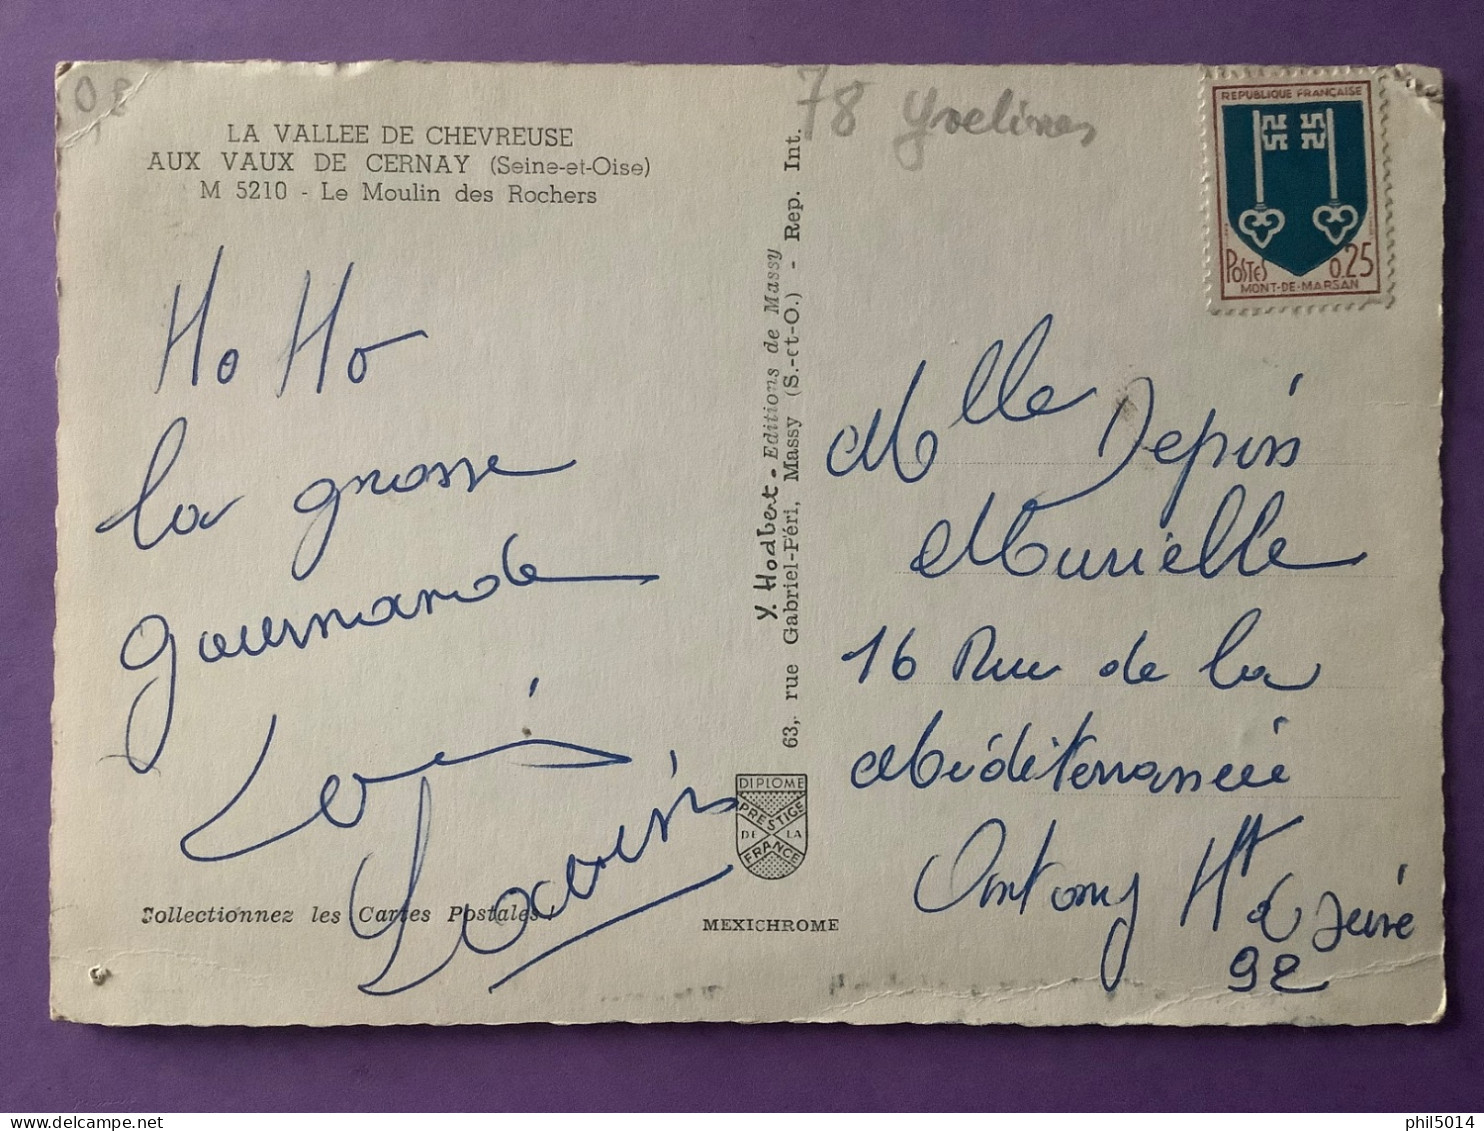 LA VALLEE DE CHEVREUSE
AUX VAUX DE CERNAY (Seine-et-Oise)
M 5210 - Le Moulin des Rochers
Ho Ho
la grosse
gourmande
Louis
Collectionnez les Cartes Postales !
Y. Hodbert - Editions de Massy
63, rue Gabriel-Péri, Massy (S.-et-O.) - Rep. Int.
DIPLOME
PRESTIGE
DE LA
FRANCE
MEXICHROME
78 Yvelines
REPUBLIQUE FRANÇAISE
POSTES 0,25
MONT-DE-MARSAN
Mlle Depins
Murielle
16 Rue de la
Méditerranée
Antony Ht d Seine
92
phil5014